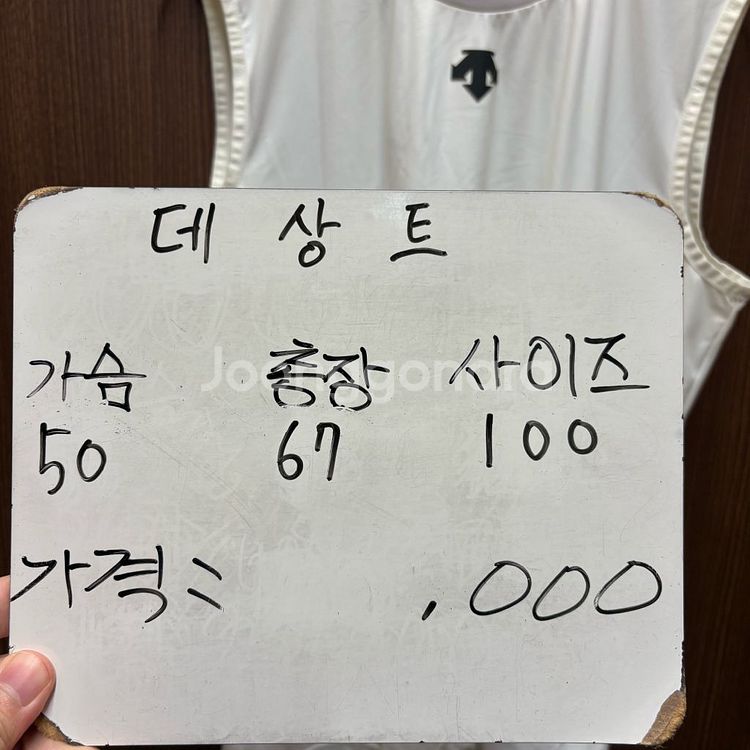 데상트
가슴 총장 사이즈
50 67 100
가격: ,000
Joonggonara